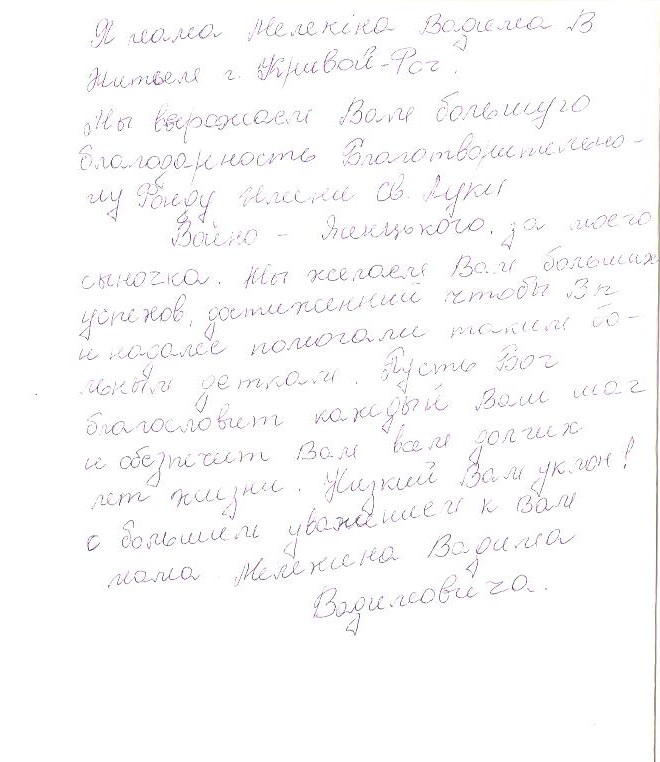 Я мама Мелекіна Вадима В
Жителе г. Кривой-Рог.
Мы выражаем Вам большую
благодарность Благотворительно-
му Фонду имени св. Луки
Война - Ясенцького, за моего
сыночка. Мы желаем Вам больших
успехов, достижений чтобы Вы
и надалее помогали таким бо-
льным деткам. Пусть Бог
благословит каждый Ваш шаг
и обезпечит Вам всем долгих
лет жизни. Низкий Вам уклон!
с большим уважением к Вам
мама Мелекина Вадима
Вадимовича.